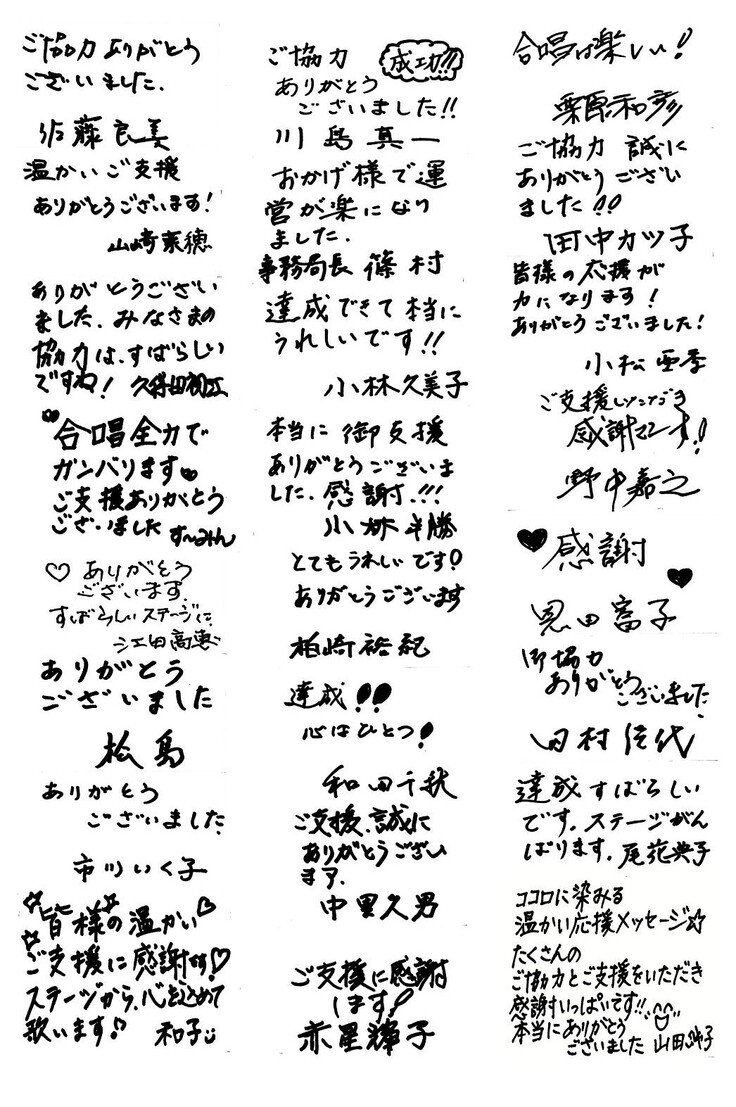 ご協力ありがとう
ございました.
佐藤良美
温かいご支援
ありがとうございます!
山崎業穂
ありがとうござい
ました.みなさまの
協力は、すばらしい
ですね!
合唱全力で
ガンバります♥
ご支援ありがとう
ございました す〜みん
♡ありがとう
ございます.
すばらしいステージに.
江田高恵
ありがとう
ございました
松島
ありがとう
ございました.
市川いく子
☆皆様の温かい♡
ご支援に感謝です!♡
ステージから、心を込めて
歌います♪ 和子
ご協力 成功!!!
ありがとう
ございました!!
川島真一
おかげ様で運
営が楽になり
ました.
事務局長 篠村
達成できて本当に
うれしいです!!
小林久美子
本当に御支援
ありがとうございま
した.感謝.!!!
小林半勝
とてもうれしいです!
ありがとうございます
柏崎裕紀
達成!!
心はひとつ!
和田千秋
ご支援、誠に
ありがとうござい
ます.
中里久男
ご支援に感謝
します!
赤星輝子
合唱は楽しい!
栗原和彦
ご協力 誠に
ありがとうござい
ました!!
田中カツ子
皆様の応援が
力になります!
ありがとうございました!
小松亜季
ご支援いただき
感謝です!
野中嘉之
♥感謝
♥
恩田富子
御協力
ありがとう
ございました.
田村佳代
達成すばらしい
です.ステージがん
ばります.尾花典子
ココロに染みる
温かい応援メッセージ☆
たくさんの
ご協力とご支援をいただき
感謝いっぱいです!!
本当にありがとう
ございました 山田